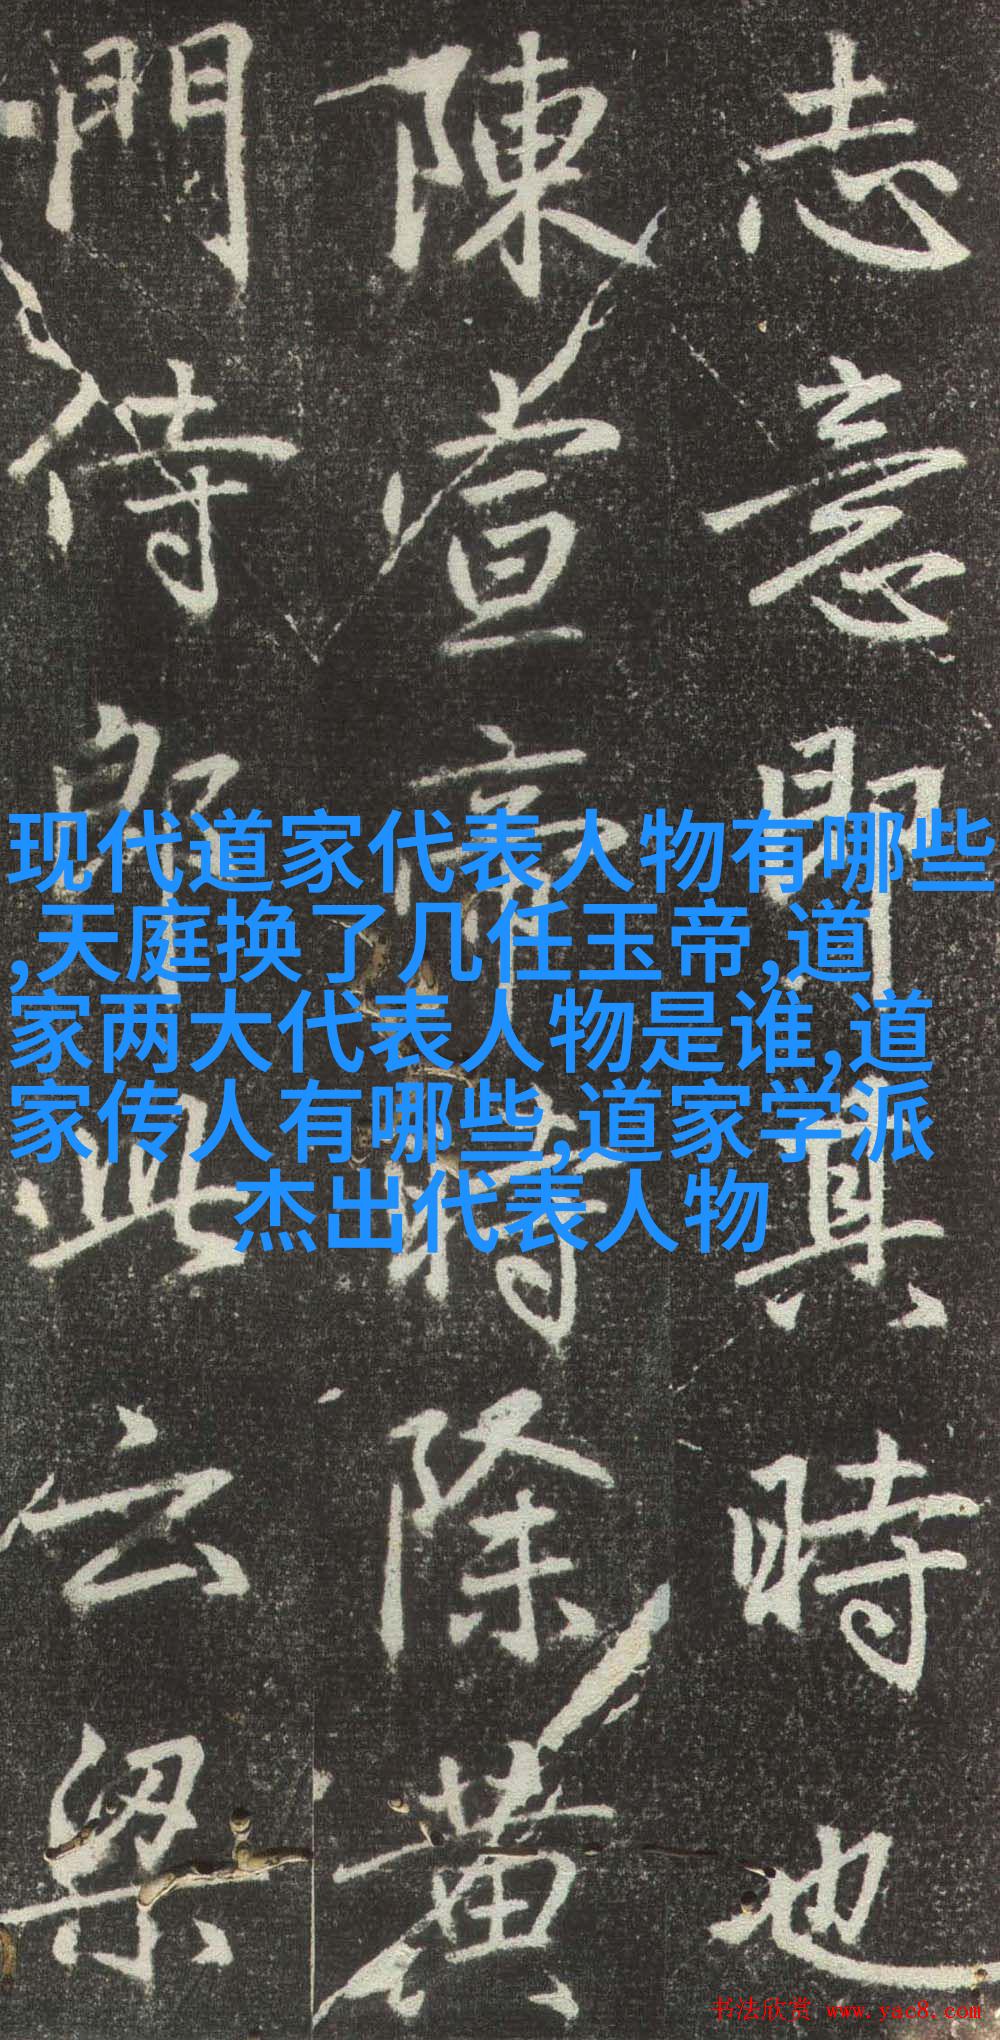 志意即真時也
陳宣帝時除黄
門侍郎此云梁
现代道家代表人物有哪些
,天庭换了几任玉帝,道
家两大代表人物是谁,道
家传人有哪些,道家学派
杰出代表人物
书法欣赏 www.yac8.com